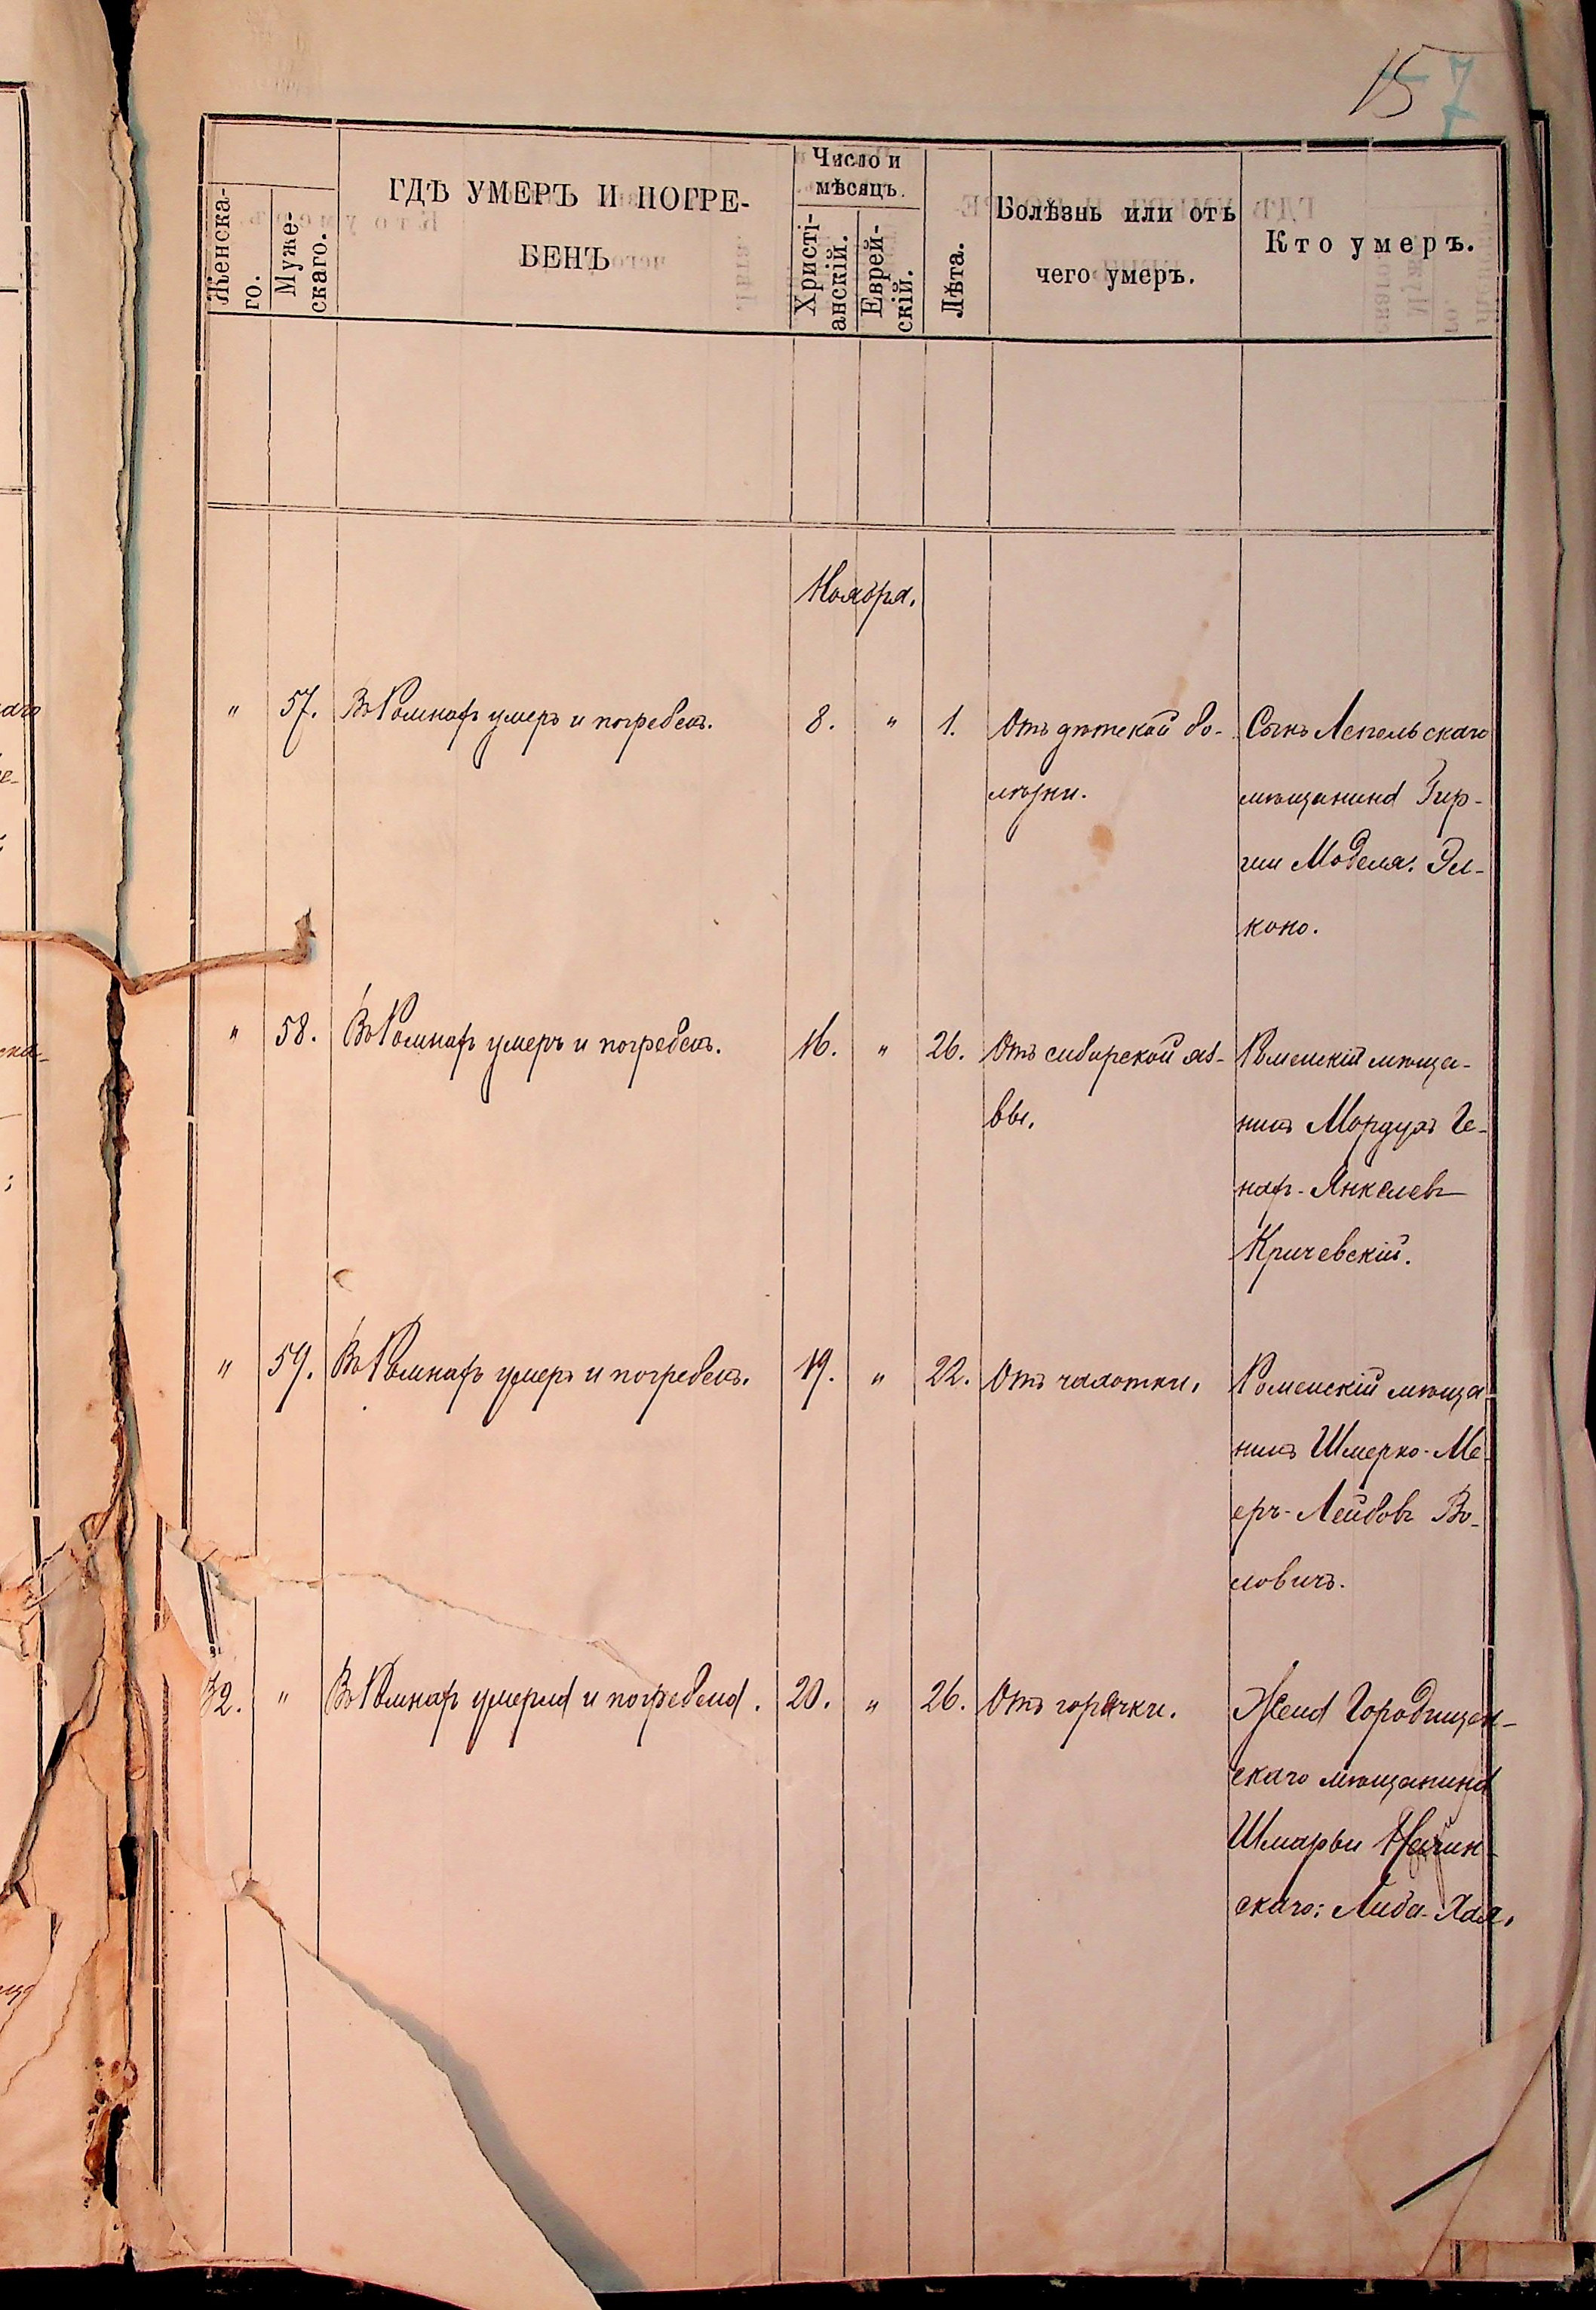 15 7
Женска-
го.
Муже-
скаго.
ГДѢ УМЕРЪ И ПОГРЕ-
БЕНЪ
Число и
мѣсяцъ.
Христі-
анскій.
Еврей-
скій.
Лѣта.
Болѣзнь или отъ
чего умеръ.
Кто умеръ.
Ноября.
" 57. Въ Ромнахъ умеръ и погребенъ. 8. " 1. Отъ дѣтской бо- Сынъ Лепельскаго
лѣзни. мѣщанина Гир-
ши Моделя: Эл-
коно.
" 58. Въ Ромнахъ умеръ и погребенъ. 16. " 26. Отъ сибирской яз- Роменскій мѣща-
вы. нинъ Мордухъ Ге-
нахъ-Янкелевъ
Кричевскій.
" 59. Въ Ромнахъ умеръ и погребенъ. 19. " 22. Отъ чахотки. Роменскій мѣща
нинъ Шмерко-Ме-
еръ-Лейбовъ Во-
ловичъ.
32. " Въ Ромнахъ умерла и погребена. 20. " 26. Отъ горячки. Жена Городищен-
скаго мѣщанина
Шмарьи
скаго: Либа-Хая.